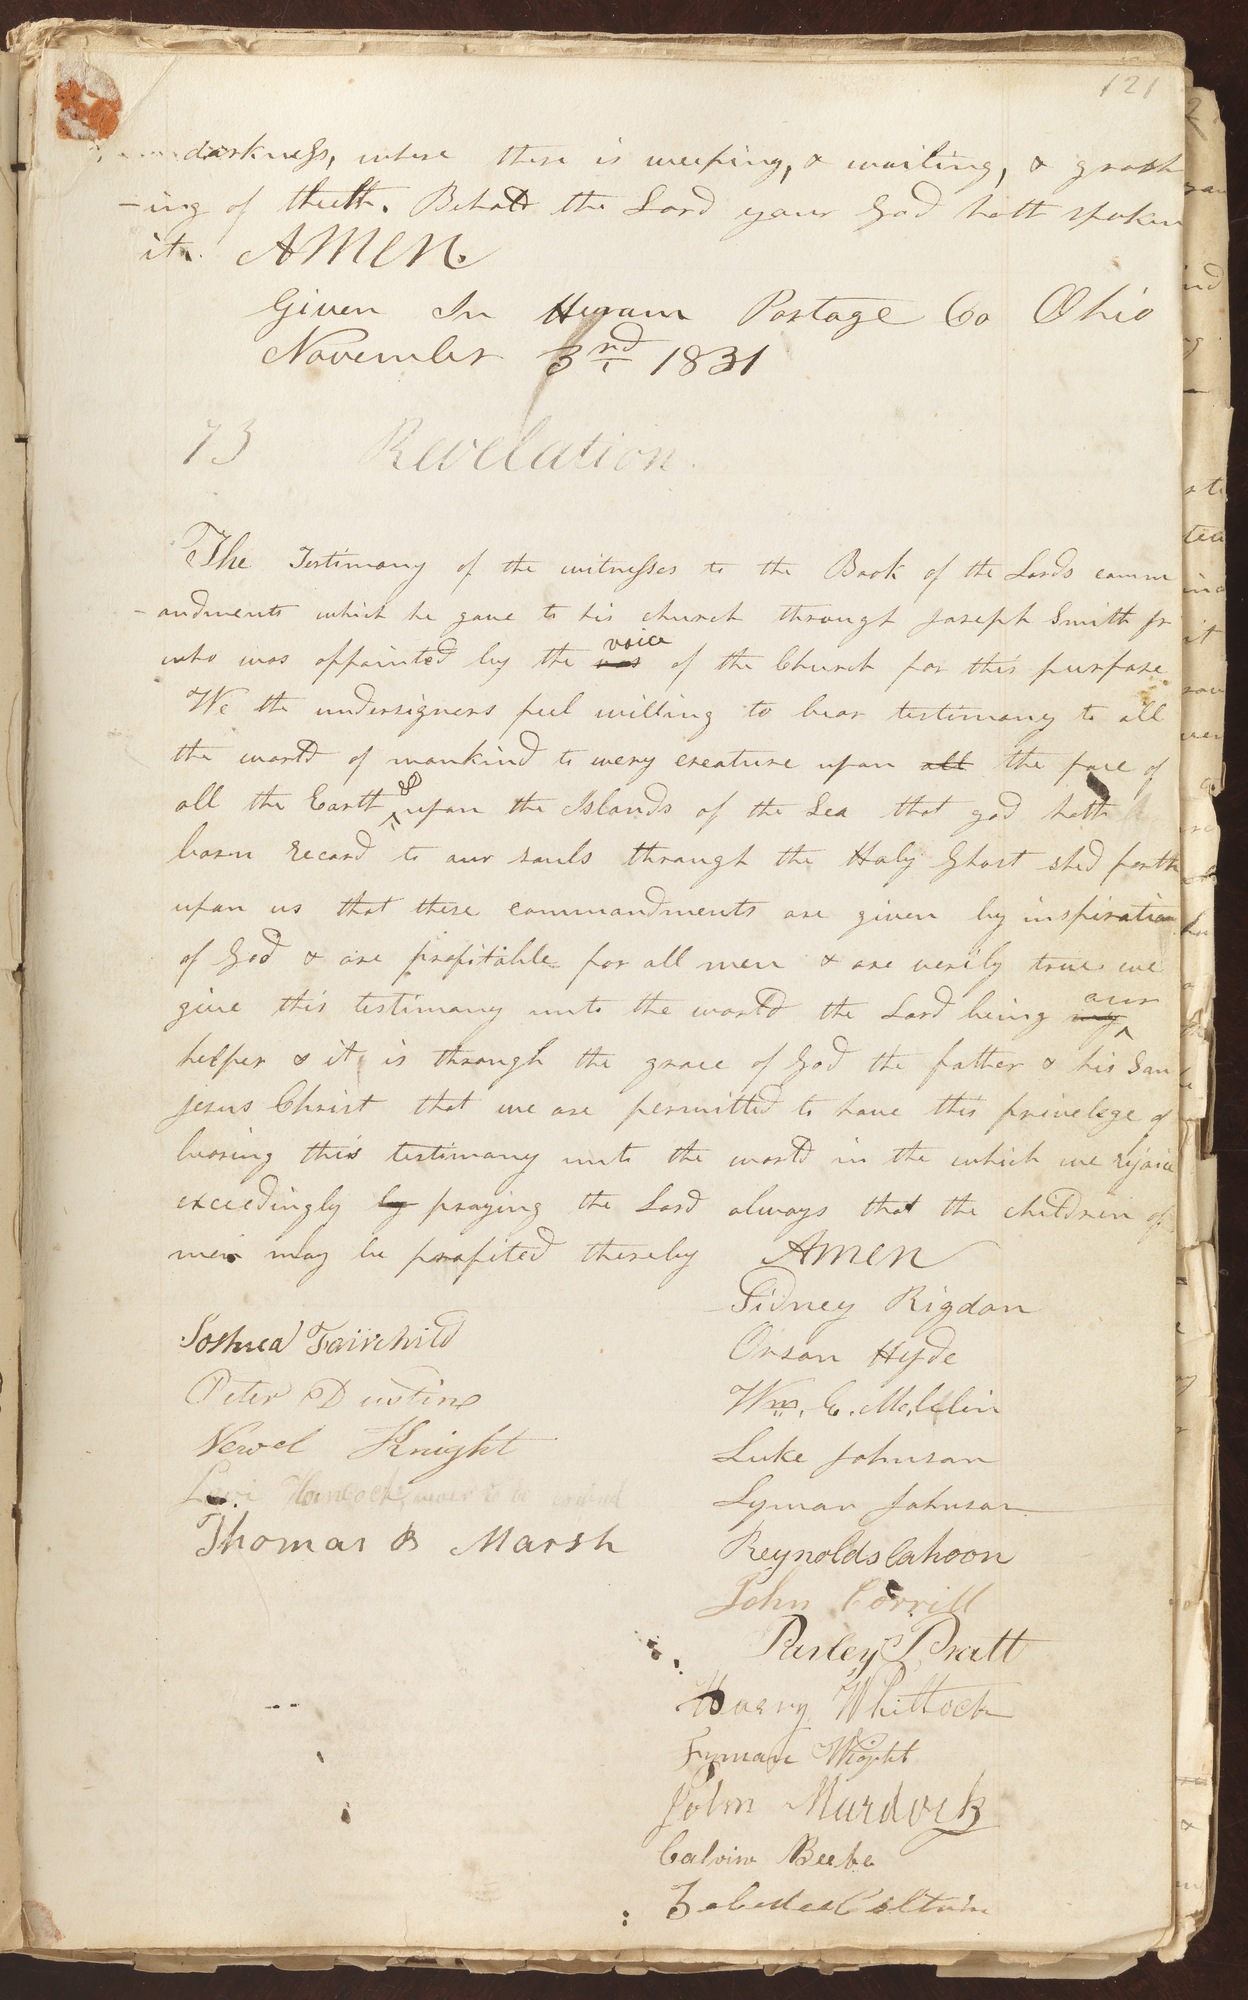 121
darkness, where there is weeping, & wailing, & gnash
-ing of theeth. Behold the Lord your God hath spoken
it. AMEN.
Given In Hyram Portage Co Ohio
November 3rd 1831
73 Revelation.
The Testimony of the witnesses to the Book of the Lords comm
-andments which he gave to his church through Joseph Smith jr
who was appointed by the was voice of the Church for this purpose
We the undersigners feel willing to bear testimony to all
the world of mankind to every creature upon all the face of
all the Earth & upon the Islands of the Sea that god hath
born record to our souls through the Holy Ghost shed forth
upon us that these commandments are given by inspiration
of God & are profitable for all men & are verily true we
give this testimony unto the world the Lord being my our
helper & it is through the grace of God the father & his Son
Jesus Christ that we are permitted to have this privelege of
bearing this testimony unto the world in the which we rejoice
exceedingly by praying the Lord always that the children of
men may be profited thereby AMEN
Sidney Rigdon
Orson Hyde
Wm. E. Mclelin
Luke Johnson
Lyman Johnson
Reynolds Cahoon
John Corrill
Parley P Pratt
Harvy Whitlock
Lyman Wight
John Murdock
Calvin Beebe
Zebedee Coltrin
Joshua Fairchild
Peter Dustin
Newel Knight
Levi Hancock never to be erased
Thomas B Marsh